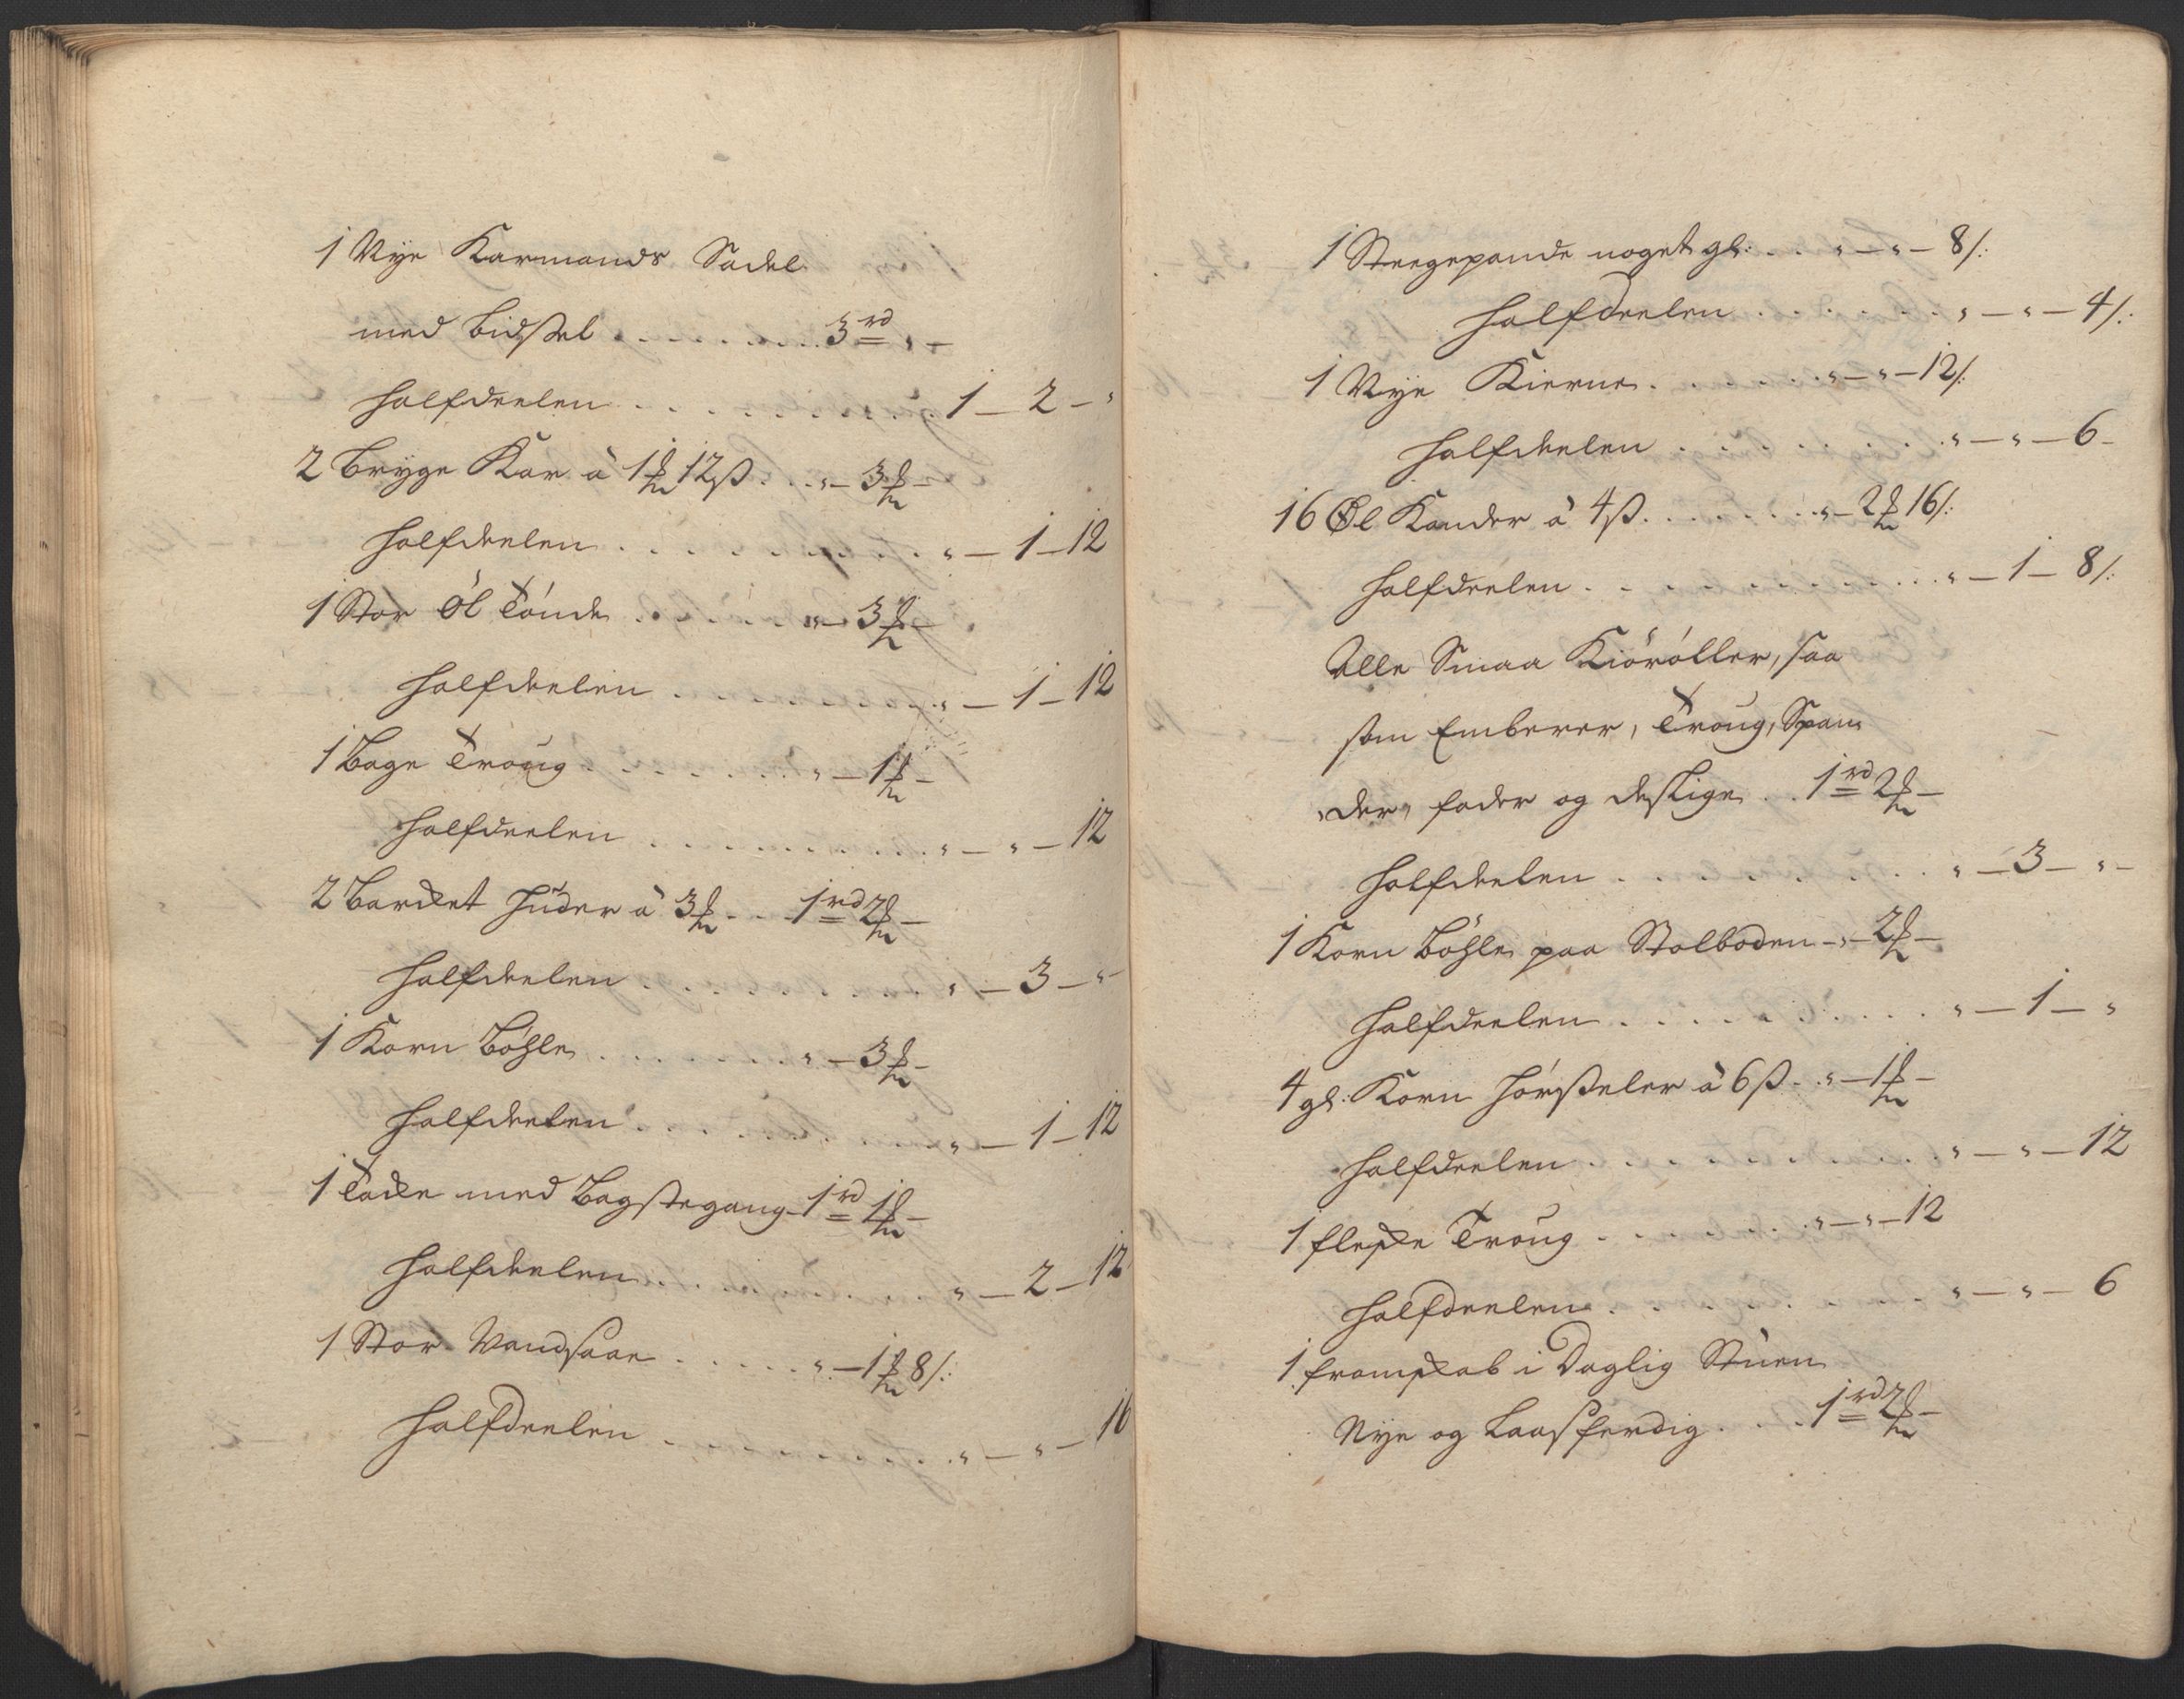 1 Nye Karmands Sadel
med bidsel . . . . . . 3 rd „ –
halfdeelen . . . . . . . . 1 – 2 – „
2 Brygge Kar à 1 ₰ 12 ß . . „ – 3 ₰ –
halfdeelen . . . . . . . . „ – 1 – 12
1 Stor Öl Tönde . . . „ – 3 ₰ –
halfdeelen . . . . . . . „ – 1 – 12
1 Bage Troug . . . . . „ – 1 ₰ –
halfdeelen . . . . . . . . „ – „ – 12
2 Barket Huder à 3 ₰ . . 1 rd 2 ₰ –
halfdeelen . . . . . . . . „ – 3 – „
1 Korn Böhle . . . . . . „ – 3 ₰ –
halfdeelen . . . . . . . . „ – 1 – 12
1 Tacke med Bagstegang – 1 rd 1 ₰ –
halfdeelen . . . . . . . . „ – 2 – 12
1 Stor Vandsaae . . . . . „ – 1 ₰ 8 /:
halfdeelen . . . . . . . . „ – „ – 16
1 Steegepande noget gl: . . . „ – „ – 8 /:
halfdeelen . . . . . . . „ – „ – 4 /:
1 Nye Kierne . . . . . . „ – „ – 12 /:
halfdeelen . . . . . . . . „ – „ – 6 –
16 Øl Kander à 4 ß . . . . . . „ – 2 ₰ 16 /:
halfdeelen . . . . . . . . . „ – 1 – 8 /:
Alle Smaa Kiöröller, saa
som Emberer, Troug, Span
„der, fader og deslige . . 1 rd 2 ₰ –
halfdeelen . . . . . . . . . „ – 3 – „ –
1 Korn Böhle paa Stolboden – „ – 2 ₰ –
halfdeelen . . . . . . . . . „ – 1 – „
4 gl: Korn Hörsteler à 6 ß . „ – 1 ₰ –
halfdeelen . . . . . . . . . „ – „ – 12
1 fleske Troug . . . . . . „ – „ – 12
halfdeelen . . . . . . . . . „ – „ – 6
1 framskab i Daglig Stuen
Nye og Laasferdig . . . 1 rd 2 ₰ –